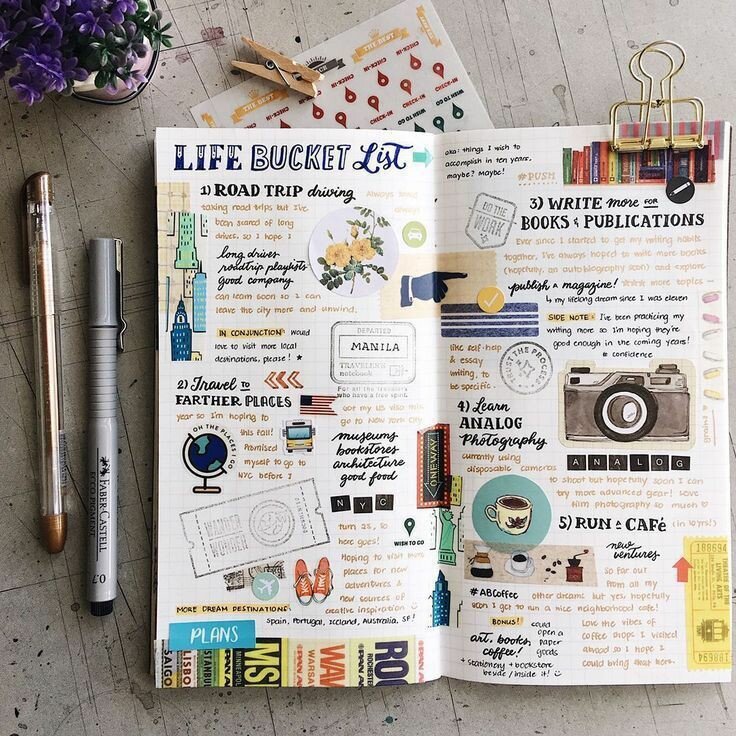 THE BEST
CHECK-IN
WISH TO GO
LIFE BUCKET LIST
aka: things I wish to
accomplish in ten years,
maybe? Maybe!
#PUSH
1) ROAD TRIP driving
Always loved
taking road trips but I've always
been scared of long
drives, so I hope I
long drives
roadtrip playlists
good company
can learn soon so I can
leave the city more and unwind.
IN CONJUNCTION: would
love to visit more local
destinations, please!
DEPARTED
MANILA
TRAVELER'S
notebook
For all the travelers
who have a free spirit.
2) Travel to
FARTHER PLACES
Got my US visa this
year so I'm hoping to
go to New York City
this fall!
Promised
myself to go to
NYC before I
ON THE PLACES I GO
museums
bookstores
architecture
good food
NYC
turn 25, so
here goes!
WISH TO GO
Hoping to visit more
places for new
adventures &
new sources of
creative inspiration
WANDER
WONDER
MORE DREAM DESTINATIONS:
Spain, Portugal, Iceland, Australia, SF!
PLANS
SAIGON
LISBON
ISTANBUL
MINNEAPOLIS
MSP
WARSAW
WAW
ROCHESTER
ROC
DO THE
WORK
3) WRITE more FOR
BOOKS & PUBLICATIONS
Ever since I started to get my writing habits
together, I've always hoped to write more books
(hopefully, an autobiography soon) and explore
publish a magazine!
more topics -
↳ my lifelong dream since I was eleven
SIDE NOTE: I've been practicing my
writing more so I'm hoping they're
good enough in the coming years!
# confidence
like self-help
& essay
writing, to
be specific.
TRUST THE PROCESS
4) Learn
ANALOG
Photography
ONE WAY
currently using
disposable cameras
ANALOG
to shoot but hopefully soon I can
try more advanced gear! Love
film photography so much
5) RUN a CAFé (in 10 yrs!)
new
ventures
#ABCoffee
so far out
from all my
other dreams but yes, hopefully
soon I get to run a nice neighborhood cafe!
BONUS!
could
open a
paper
goods
art, books,
coffee!
+ stationery + bookstore
beside/inside it!
Love the vibes of
coffee shops I visited
abroad so I hope I
could bring that here.
188694
188694
FABER-CASTELL
ECCO PIGMENT
0.7